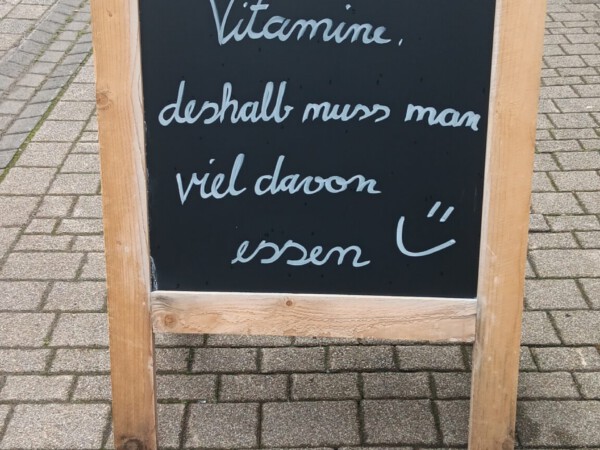 Vitamine,
deshalb muss man
viel davon
essen